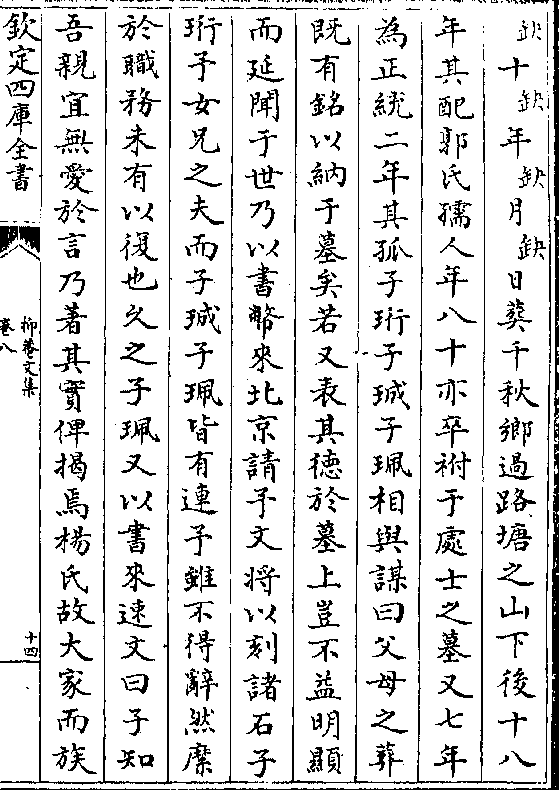 缺十缺年缺月缺日葬千秋鄉過路塘之山下後十八
年其配郭氏孺人年八十亦卒祔于處士之墓又七年
為正統二年其孤子珩子珹子珮相與謀曰父母之葬
既有銘以納于墓矣若又表其德於墓上豈不益明顯
而延聞于世乃以書幣來北京請予文將以刻諸石子
珩予女兄之夫而子珹子珮皆有連予雖不得辭然縻
於職務未有以復也久之子珮又以書來速文曰子知
吾親宜無愛於言乃著其實俾揭焉楊氏故大家而族
欽定四庫全書
抑菴文集
卷八
十四